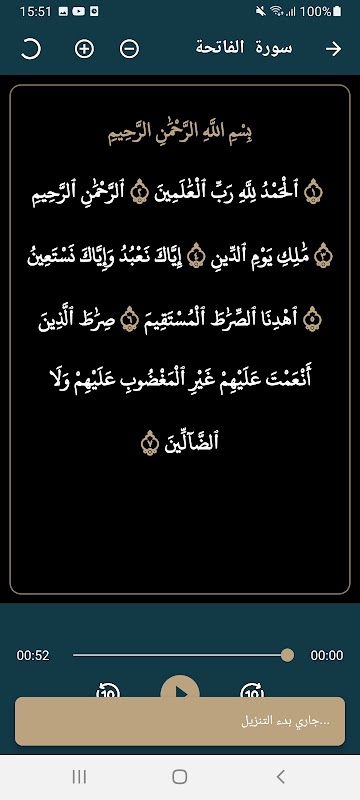 15:51 100%
سورة الفاتحة
بِسْمِ اللَّهِ الرَّحْمَٰنِ الرَّحِيمِ
۝١ ٱلْحَمْدُ لِلَّهِ رَبِّ ٱلْعَٰلَمِينَ ۝٢ ٱلرَّحْمَٰنِ ٱلرَّحِيمِ
۝٣ مَٰلِكِ يَوْمِ ٱلدِّينِ ۝٤ إِيَّاكَ نَعْبُدُ وَإِيَّاكَ نَسْتَعِينُ
۝٥ ٱهْدِنَا ٱلصِّرَٰطَ ٱلْمُسْتَقِيمَ ۝٦ صِرَٰطَ ٱلَّذِينَ
أَنْعَمْتَ عَلَيْهِمْ غَيْرِ ٱلْمَغْضُوبِ عَلَيْهِمْ وَلَا
ٱلضَّآلِّينَ ۝٧
00:52 00:00
10 10
...جاري بدء التنزيل